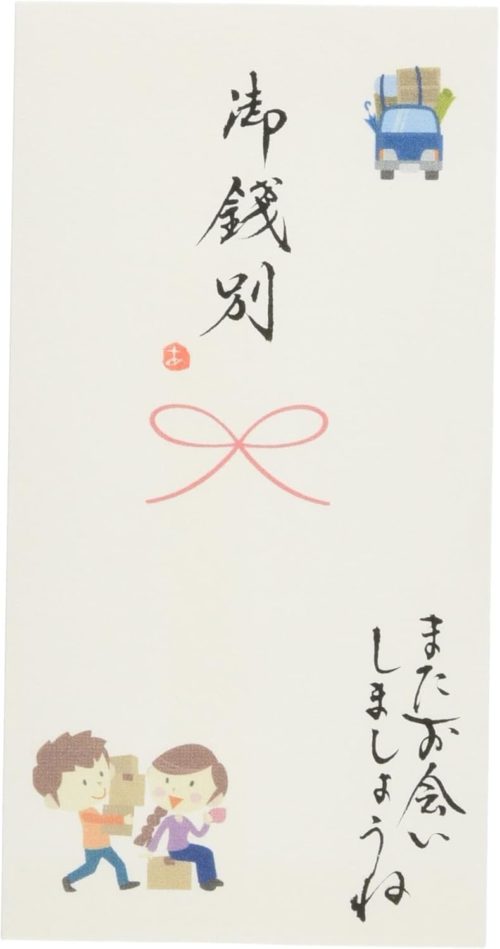 御餞別
またお会い
しましょうね